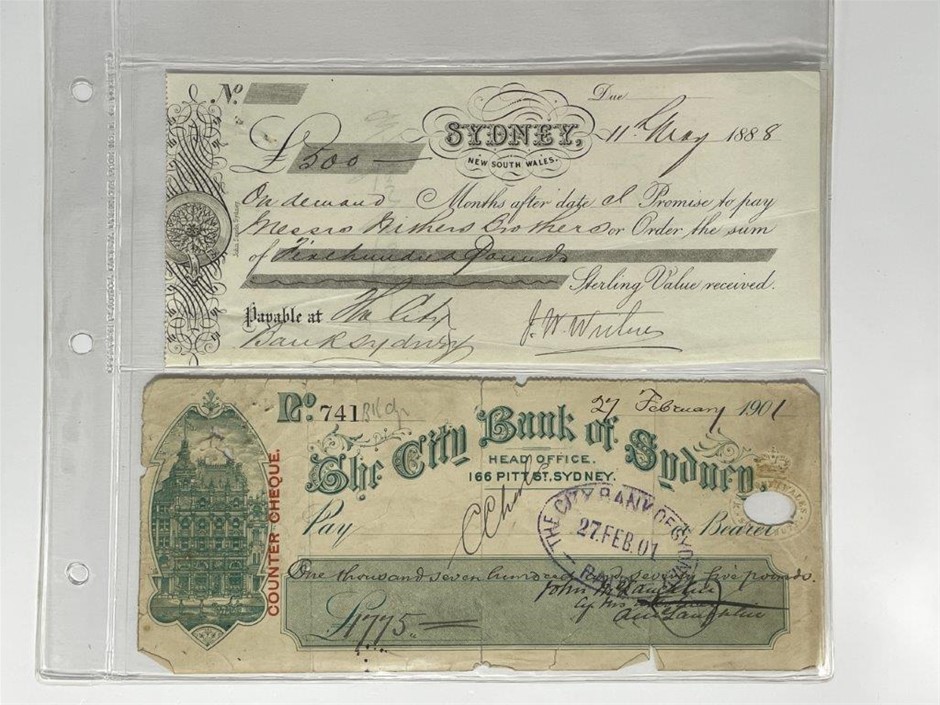 No.
Due
SYDNEY,
11th May 1888
NEW SOUTH WALES.
£500
On demand Months after date I Promise to pay
Messrs Withers Brothers or Order the sum
of Five hundred Pounds
Sterling Value received.
Payable at The City
Bank Sydney
No. 741
27 February 1901
The City Bank of Sydney.
HEAD OFFICE.
166 PITT ST, SYDNEY.
COUNTER CHEQUE.
Pay
Bearer
THE CITY BANK OF SYDNEY
27.FEB.01
One thousand seven hundred and seventy five pounds.
John
£1775